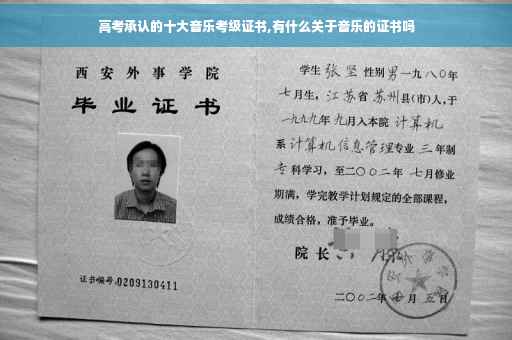 高考承认的十大音乐考级证书,有什么关于音乐的证书吗
西安外事学院
毕业证书
证书编号:0209130411
学生 张坚 性别 男 一九八〇年
七月生，江苏省 苏州县(市)人,于
一九九九年 九月入本院 计算机
系 计算机信息管理专业 三 年制
专 科学习，至二〇〇二年 七月修业
期满，学完教学计划规定的全部课程，
成绩合格，准予毕业。
院长
二〇〇二年 七 月 五 日